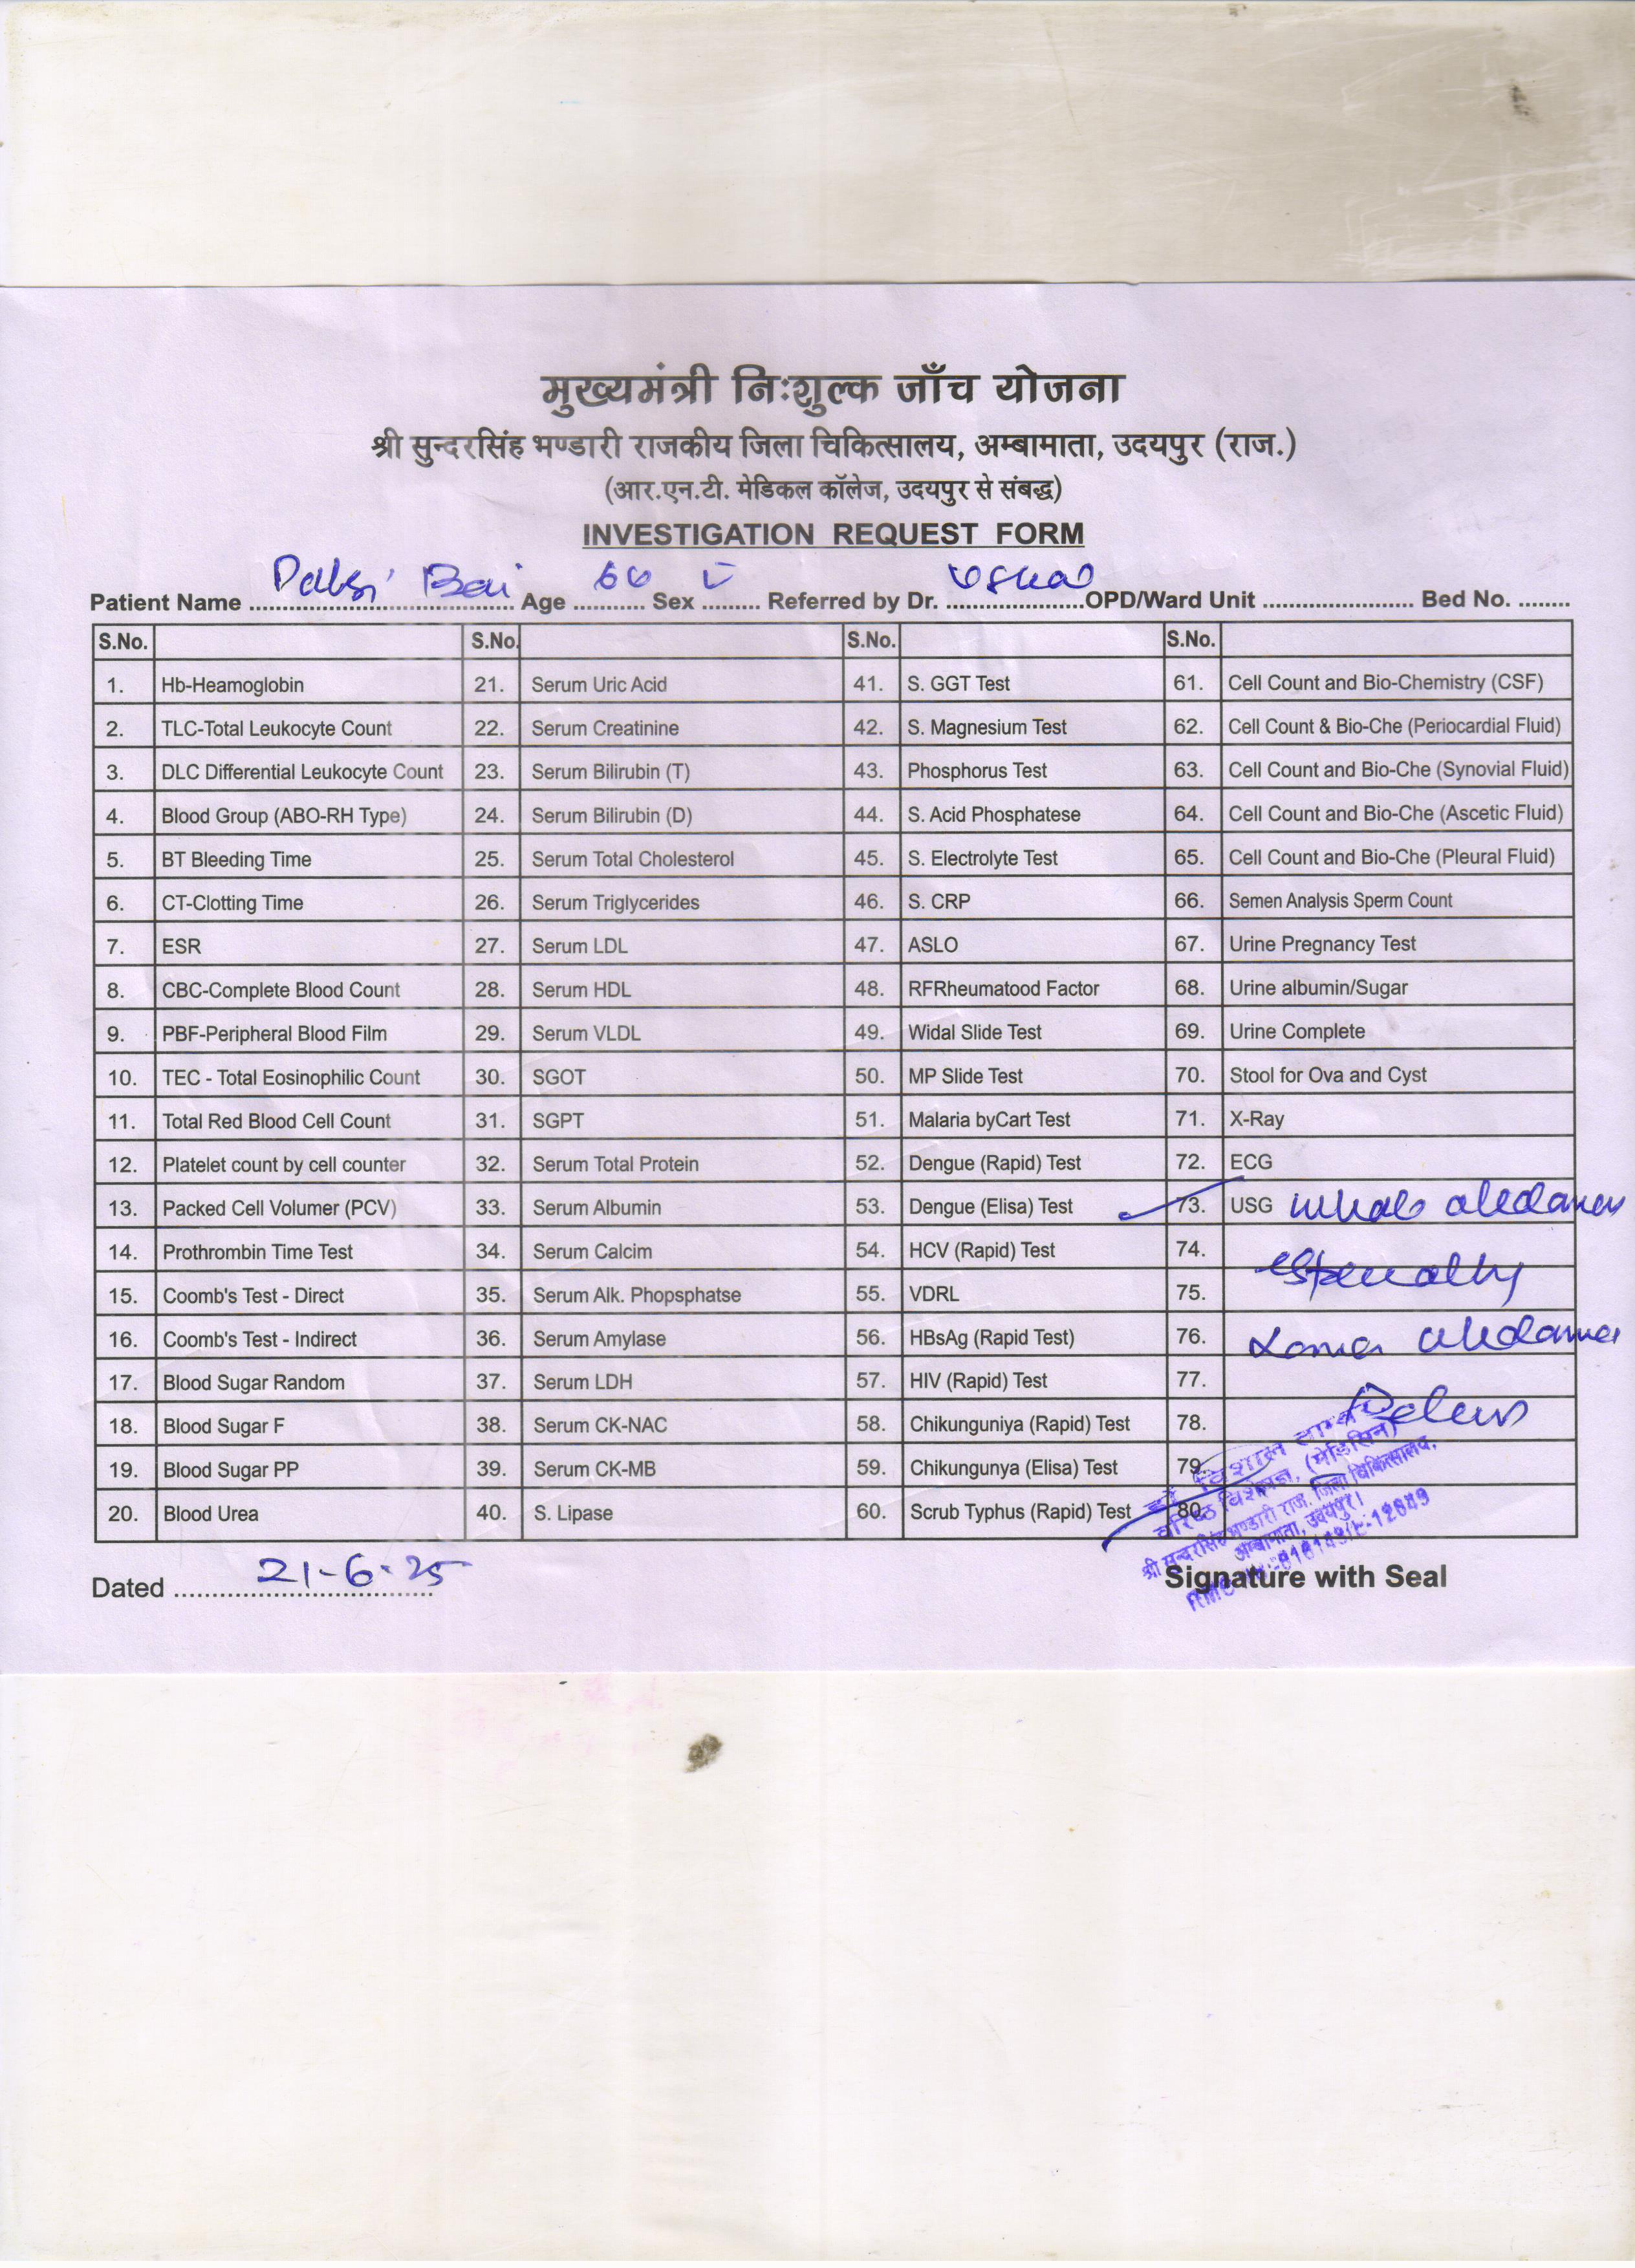 मुख्यमंत्री निःशुल्क जाँच योजना
श्री सुन्दरसिंह भण्डारी राजकीय जिला चिकित्सालय, अम्बामाता, उदयपुर (राज.)
(आर.एन.टी. मेडिकल कॉलेज, उदयपुर से संबद्ध)
INVESTIGATION REQUEST FORM
Patient Name ........ Bai Age ........ Sex ........ Referred by Dr. ........ OPD/Ward Unit ........ Bed No. ........
S.No. S.No. S.No. S.No.
1. Hb-Heamoglobin 21. Serum Uric Acid 41. S. GGT Test 61. Cell Count and Bio-Chemistry (CSF)
2. TLC-Total Leukocyte Count 22. Serum Creatinine 42. S. Magnesium Test 62. Cell Count & Bio-Che (Periocardial Fluid)
3. DLC Differential Leukocyte Count 23. Serum Bilirubin (T) 43. Phosphorus Test 63. Cell Count and Bio-Che (Synovial Fluid)
4. Blood Group (ABO-RH Type) 24. Serum Bilirubin (D) 44. S. Acid Phosphatese 64. Cell Count and Bio-Che (Ascetic Fluid)
5. BT Bleeding Time 25. Serum Total Cholesterol 45. S. Electrolyte Test 65. Cell Count and Bio-Che (Pleural Fluid)
6. CT-Clotting Time 26. Serum Triglycerides 46. S. CRP 66. Semen Analysis Sperm Count
7. ESR 27. Serum LDL 47. ASLO 67. Urine Pregnancy Test
8. CBC-Complete Blood Count 28. Serum HDL 48. RFRheumatood Factor 68. Urine albumin/Sugar
9. PBF-Peripheral Blood Film 29. Serum VLDL 49. Widal Slide Test 69. Urine Complete
10. TEC - Total Eosinophilic Count 30. SGOT 50. MP Slide Test 70. Stool for Ova and Cyst
11. Total Red Blood Cell Count 31. SGPT 51. Malaria byCart Test 71. X-Ray
12. Platelet count by cell counter 32. Serum Total Protein 52. Dengue (Rapid) Test 72. ECG
13. Packed Cell Volumer (PCV) 33. Serum Albumin 53. Dengue (Elisa) Test 73. USG whole abdomen
14. Prothrombin Time Test 34. Serum Calcim 54. HCV (Rapid) Test 74. especially
15. Coomb's Test - Direct 35. Serum Alk. Phopsphatse 55. VDRL 75.
16. Coomb's Test - Indirect 36. Serum Amylase 56. HBsAg (Rapid Test) 76. Lower abdomen
17. Blood Sugar Random 37. Serum LDH 57. HIV (Rapid) Test 77.
18. Blood Sugar F 38. Serum CK-NAC 58. Chikunguniya (Rapid) Test 78. Pelvis
19. Blood Sugar PP 39. Serum CK-MB 59. Chikungunya (Elisa) Test 79.
20. Blood Urea 40. S. Lipase 60. Scrub Typhus (Rapid) Test 80.
डॉ. विशाल
वरिष्ठ विशेषज्ञ, (मेडिसिन)
श्री सुन्दरसिंह भण्डारी राज. जिला चिकित्सालय,
अम्बामाता, उदयपुर।
Dated 21-6-25 Signature with Seal